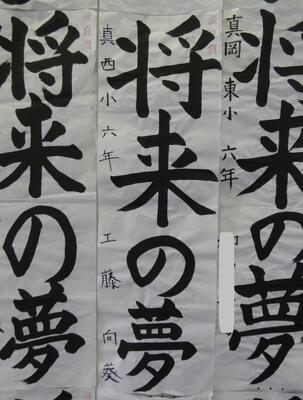 真岡東小六年
将来の夢
将来の夢
真西小六年 工藤向葵
将来の夢